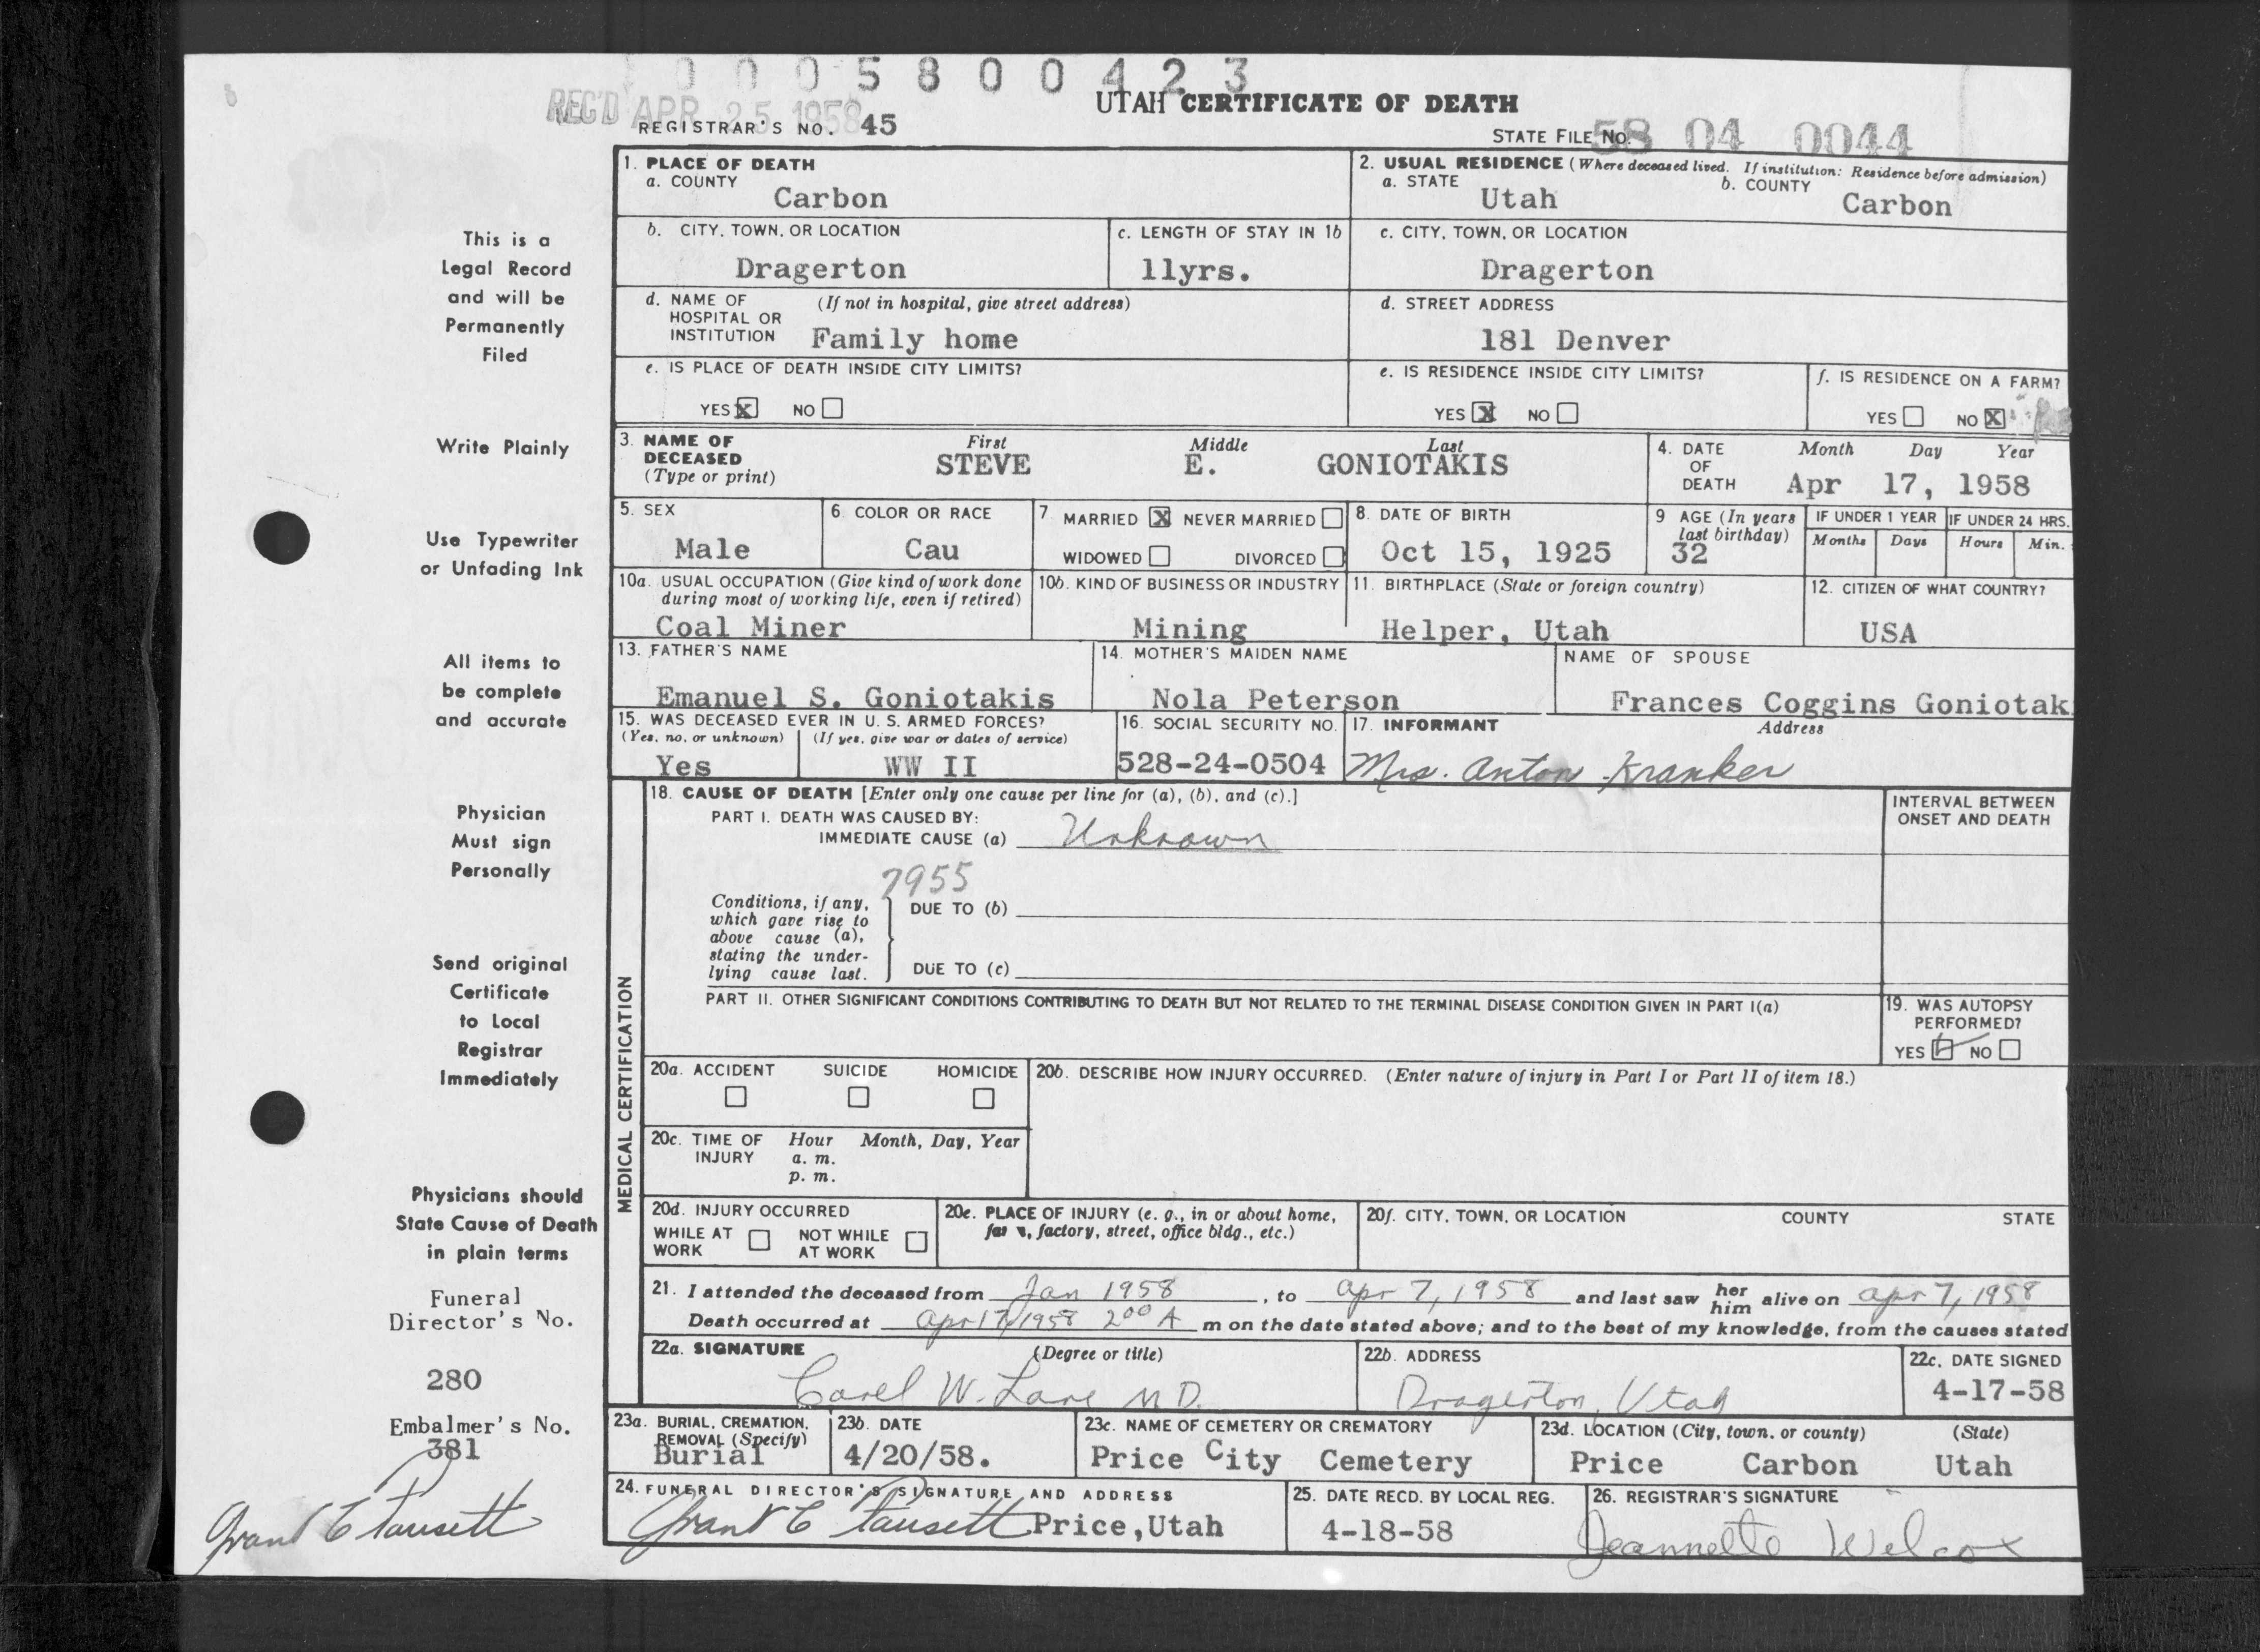 0005800423
REC'D APR 25 1958
UTAH CERTIFICATE OF DEATH
REGISTRAR'S NO. 45
STATE FILE NO. 58 04 0044
This is a
Legal Record
and will be
Permanently
Filed
Write Plainly
Use Typewriter
or Unfading Ink
All items to
be complete
and accurate
Physician
Must sign
Personally
Send original
Certificate
to Local
Registrar
Immediately
Physicians should
State Cause of Death
in plain terms
Funeral
Director's No.
280
Embalmer's No.
381
1. PLACE OF DEATH
a. COUNTY
Carbon
2. USUAL RESIDENCE (Where deceased lived. If institution: Residence before admission)
a. STATE
Utah
b. COUNTY
Carbon
b. CITY, TOWN, OR LOCATION
Dragerton
c. LENGTH OF STAY IN 1b
11yrs.
c. CITY, TOWN, OR LOCATION
Dragerton
d. NAME OF HOSPITAL OR INSTITUTION
(If not in hospital, give street address)
Family home
d. STREET ADDRESS
181 Denver
e. IS PLACE OF DEATH INSIDE CITY LIMITS?
YES X NO
e. IS RESIDENCE INSIDE CITY LIMITS?
YES X NO
f. IS RESIDENCE ON A FARM?
YES NO X
3. NAME OF DECEASED (Type or print)
First Middle Last
STEVE E. GONIOTAKIS
4. DATE OF DEATH
Month Day Year
Apr 17, 1958
5. SEX
Male
6. COLOR OR RACE
Cau
7. MARRIED X NEVER MARRIED
WIDOWED DIVORCED
8. DATE OF BIRTH
Oct 15, 1925
9 AGE (In years last birthday)
32
IF UNDER 1 YEAR
Months Days
IF UNDER 24 HRS.
Hours Min.
10a. USUAL OCCUPATION (Give kind of work done during most of working life, even if retired)
Coal Miner
10b. KIND OF BUSINESS OR INDUSTRY
Mining
11. BIRTHPLACE (State or foreign country)
Helper, Utah
12. CITIZEN OF WHAT COUNTRY?
USA
13. FATHER'S NAME
Emanuel S. Goniotakis
14. MOTHER'S MAIDEN NAME
Nola Peterson
NAME OF SPOUSE
Frances Coggins Goniotak
15. WAS DECEASED EVER IN U. S. ARMED FORCES?
(Yes, no, or unknown) (If yes, give war or dates of service)
Yes WW II
16. SOCIAL SECURITY NO.
528-24-0504
17. INFORMANT Address
Mrs. Anton Kranker
MEDICAL CERTIFICATION
18. CAUSE OF DEATH [Enter only one cause per line for (a), (b), and (c).]
PART I. DEATH WAS CAUSED BY:
IMMEDIATE CAUSE (a) Unknown
INTERVAL BETWEEN ONSET AND DEATH
7955
Conditions, if any, which gave rise to above cause (a), stating the underlying cause last.
DUE TO (b)
DUE TO (c)
PART II. OTHER SIGNIFICANT CONDITIONS CONTRIBUTING TO DEATH BUT NOT RELATED TO THE TERMINAL DISEASE CONDITION GIVEN IN PART I(a)
19. WAS AUTOPSY PERFORMED?
YES NO
20a. ACCIDENT SUICIDE HOMICIDE
20b. DESCRIBE HOW INJURY OCCURRED. (Enter nature of injury in Part I or Part II of item 18.)
20c. TIME OF INJURY
Hour Month, Day, Year
a. m.
p. m.
20d. INJURY OCCURRED
WHILE AT WORK NOT WHILE AT WORK
20e. PLACE OF INJURY (e. g., in or about home, farm, factory, street, office bldg., etc.)
20f. CITY, TOWN, OR LOCATION COUNTY STATE
21. I attended the deceased from Jan 1958, to Apr 7, 1958 and last saw her him alive on Apr 7, 1958
Death occurred at Apr 17, 1958 2 00 A m on the date stated above; and to the best of my knowledge, from the causes stated
22a. SIGNATURE (Degree or title)
Carel W. Lare M D.
22b. ADDRESS
Dragerton, Utah
22c. DATE SIGNED
4-17-58
23a. BURIAL, CREMATION, REMOVAL (Specify)
Burial
23b. DATE
4/20/58.
23c. NAME OF CEMETERY OR CREMATORY
Price City Cemetery
23d. LOCATION (City, town, or county) (State)
Price Carbon Utah
24. FUNERAL DIRECTOR'S SIGNATURE AND ADDRESS
Grant E Fausett Price, Utah
25. DATE RECD. BY LOCAL REG.
4-18-58
26. REGISTRAR'S SIGNATURE
Jeannette Welcox
Grant E Fausett